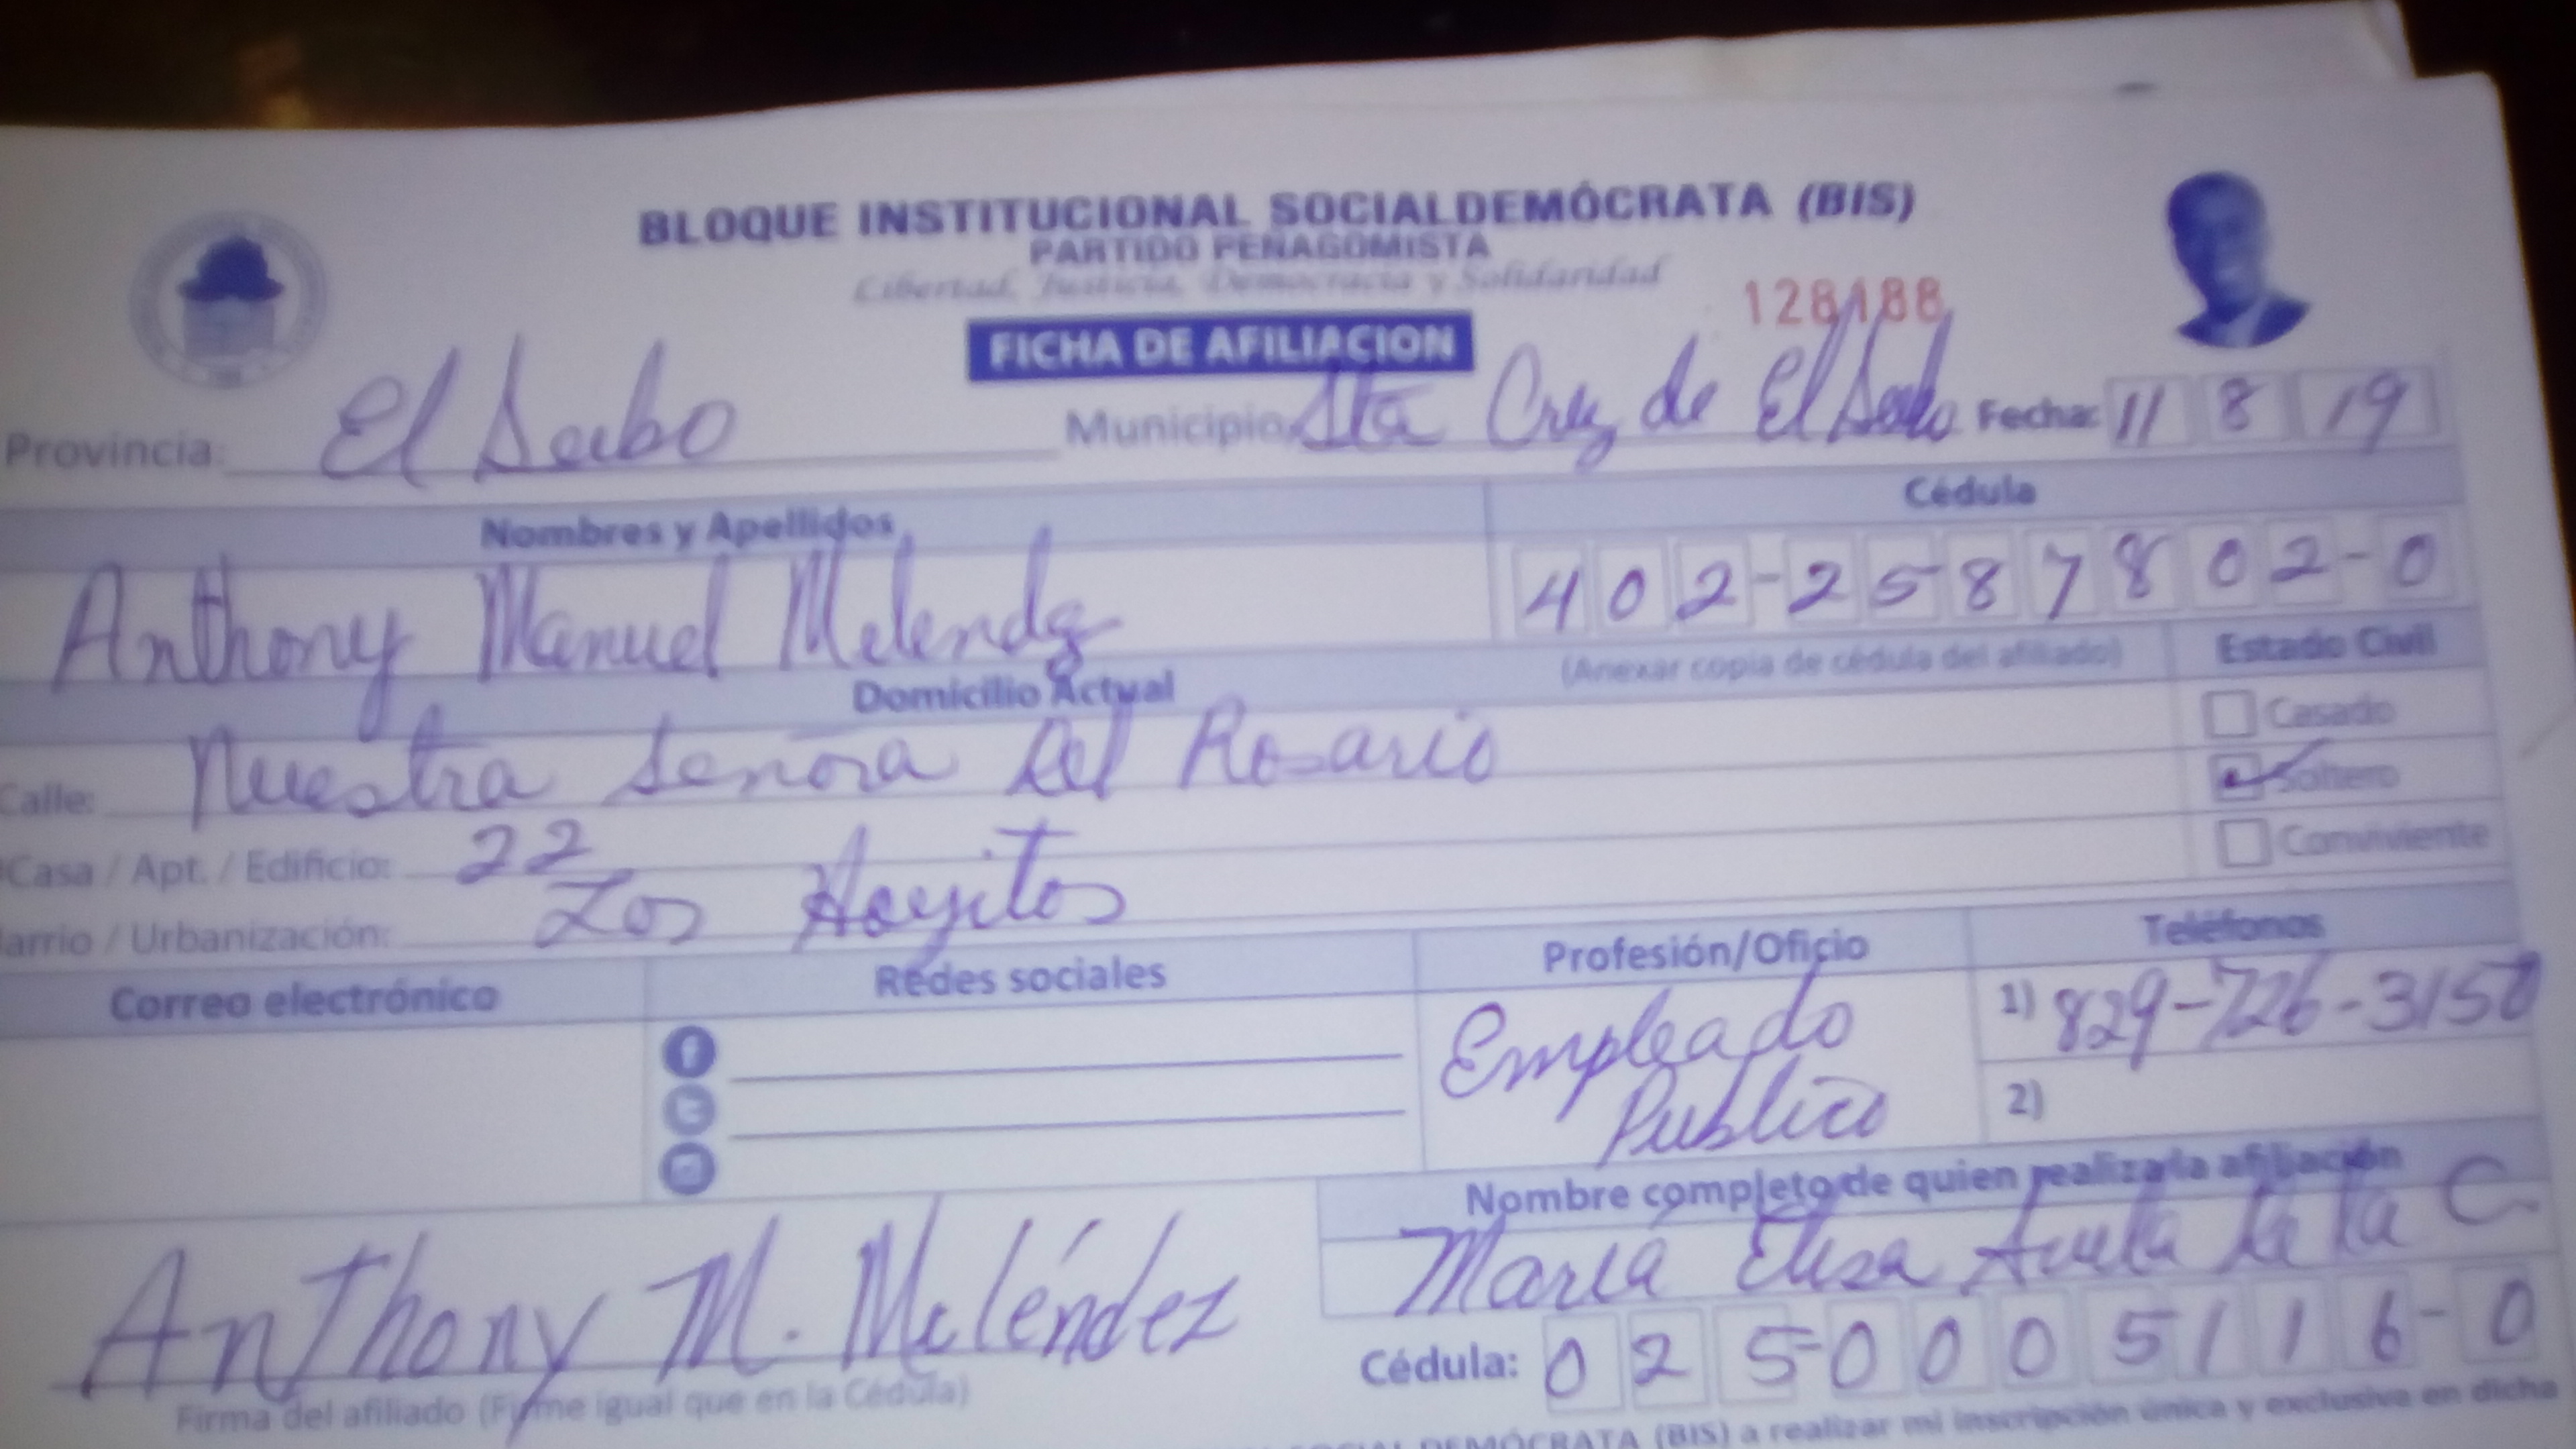 BLOQUE INSTITUCIONAL SOCIALDEMÓCRATA (BIS)
PARTIDO PEÑAGOMISTA
Libertad, Justicia, Democracia y Solidaridad
128188
FICHA DE AFILIACION
Provincia: El Seibo Municipio Sta Cruz de El Seibo Fecha: 11 8 19
Nombres y Apellidos Cédula
Anthony Manuel Melendez 402-2587802-0
(Anexar copia de cédula del afiliado) Estado Civil
Domicilio Actual
Casado
Calle: Nuestra Señora Del Rosario
Soltero
Casa / Apt. / Edificio: 22
Conviviente
arrio / Urbanización: Los Hoyitos
Correo electrónico Redes sociales Profesión/Oficio Teléfonos
Empleado Publico
1) 829-726-3150
2)
Nombre completo de quien realiza la afiliación
María Eliza De la C.
Anthony M. Meléndez
Cédula: 025-0005116-0
Firma del afiliado (Firme igual que en la Cédula)
SOCIAL DEMÓCRATA (BIS) a realizar mi inscripción única y exclusiva en dicha